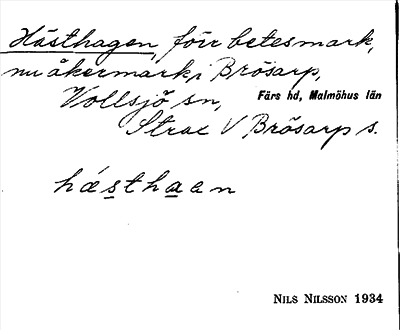 Hästhagen, förr betesmark,
nu åkermark i Brösarp,
Vollsjö sn, Färs hd, Malmöhus län
Strax V Brösarp s.
hæsthaan
NILS NILSSON 1934